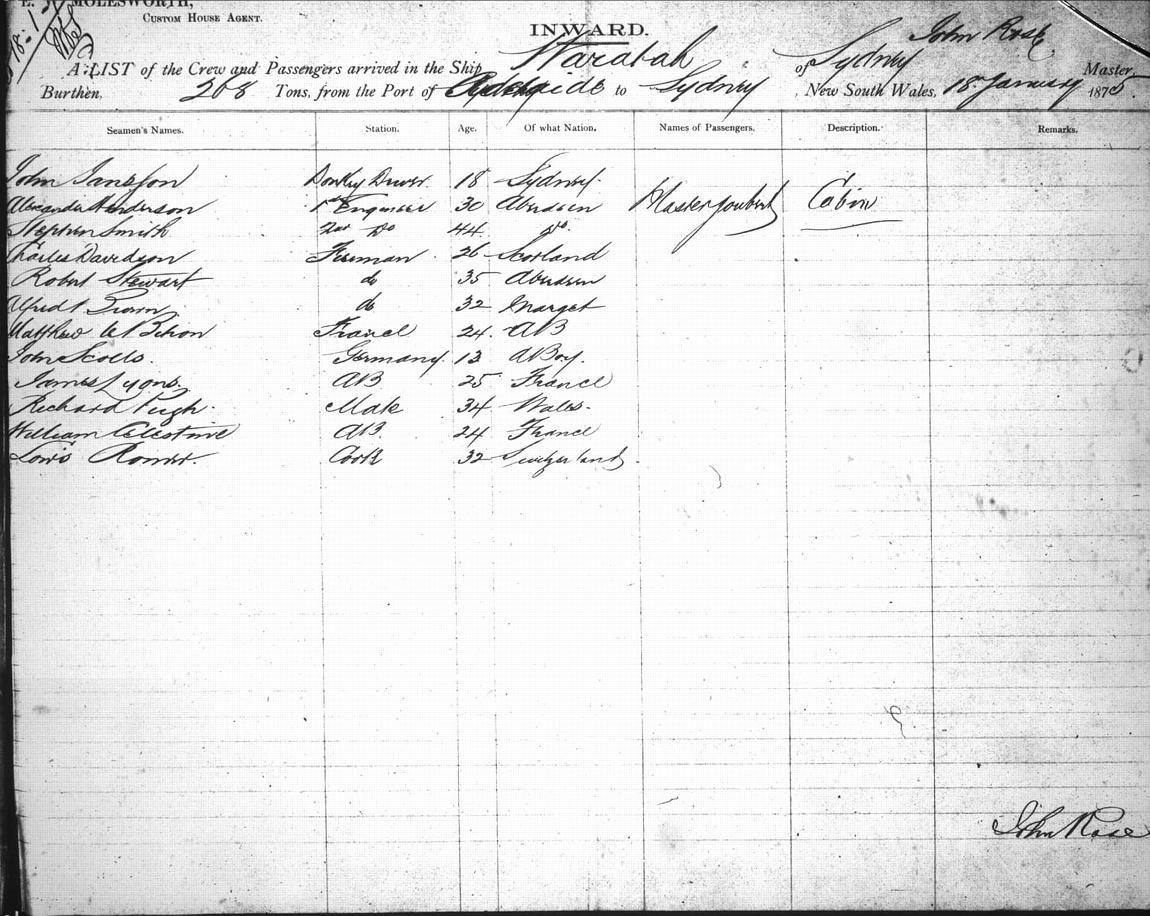 MOLESWORTH,
CUSTOM HOUSE AGENT.
INWARD.
John Rose
A LIST of the Crew and Passengers arrived in the Ship Waratah of Sydney Master,
Burthen, 208 Tons, from the Port of to Sydney, New South Wales, 18 January 1875.
Seamen's Names. Station. Age. Of what Nation. Names of Passengers. Description. Remarks.
John Jansson Donkey Driver 18 Sydney
Alexander Henderson 1st Engineer 30 Aberdeen Master Joubert Cabin
Stephen Smith 2nd Do 44 Do
Charles Davidson Fireman 26 Scotland
Robert Stewart do 35 Aberdeen
Alfred Brown do 32 Marget
Matthew France 24 AB
John Scolls. Germany 13 A Boy.
James Lyons AB 25 France
Richard Pugh Mate 34 Wales
William Celestine AB. 24 France
Louis Cook 32 Switzerland
John Rose